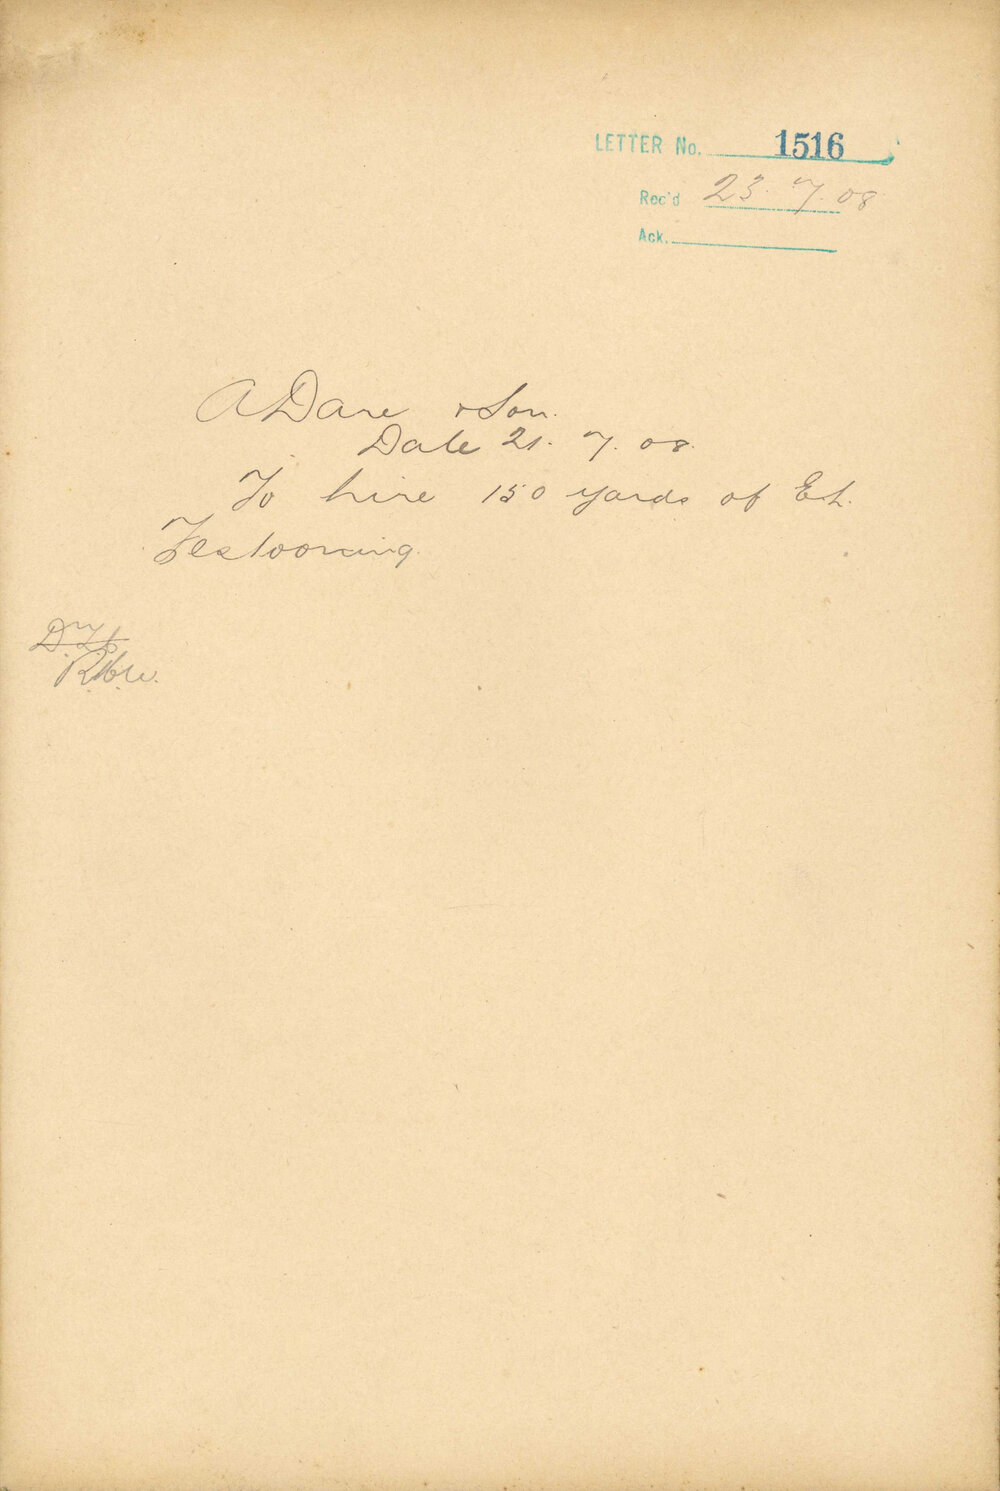 LETTER No. 1516
Rec'd 23. 7. 08
Ack.
A Dare & Son.
Date 21. 7. 08.
To hire 150 yards of EL.
Festooning.